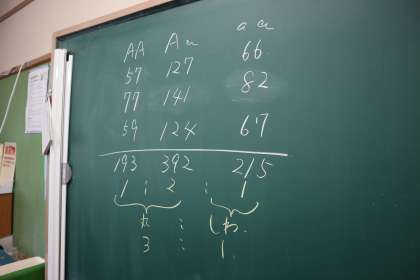 AA Aa aa
57 127 66
77 141 82
59 124 67
193 392 215
1 : 2 : 1
丸 : しわ
3 : 1